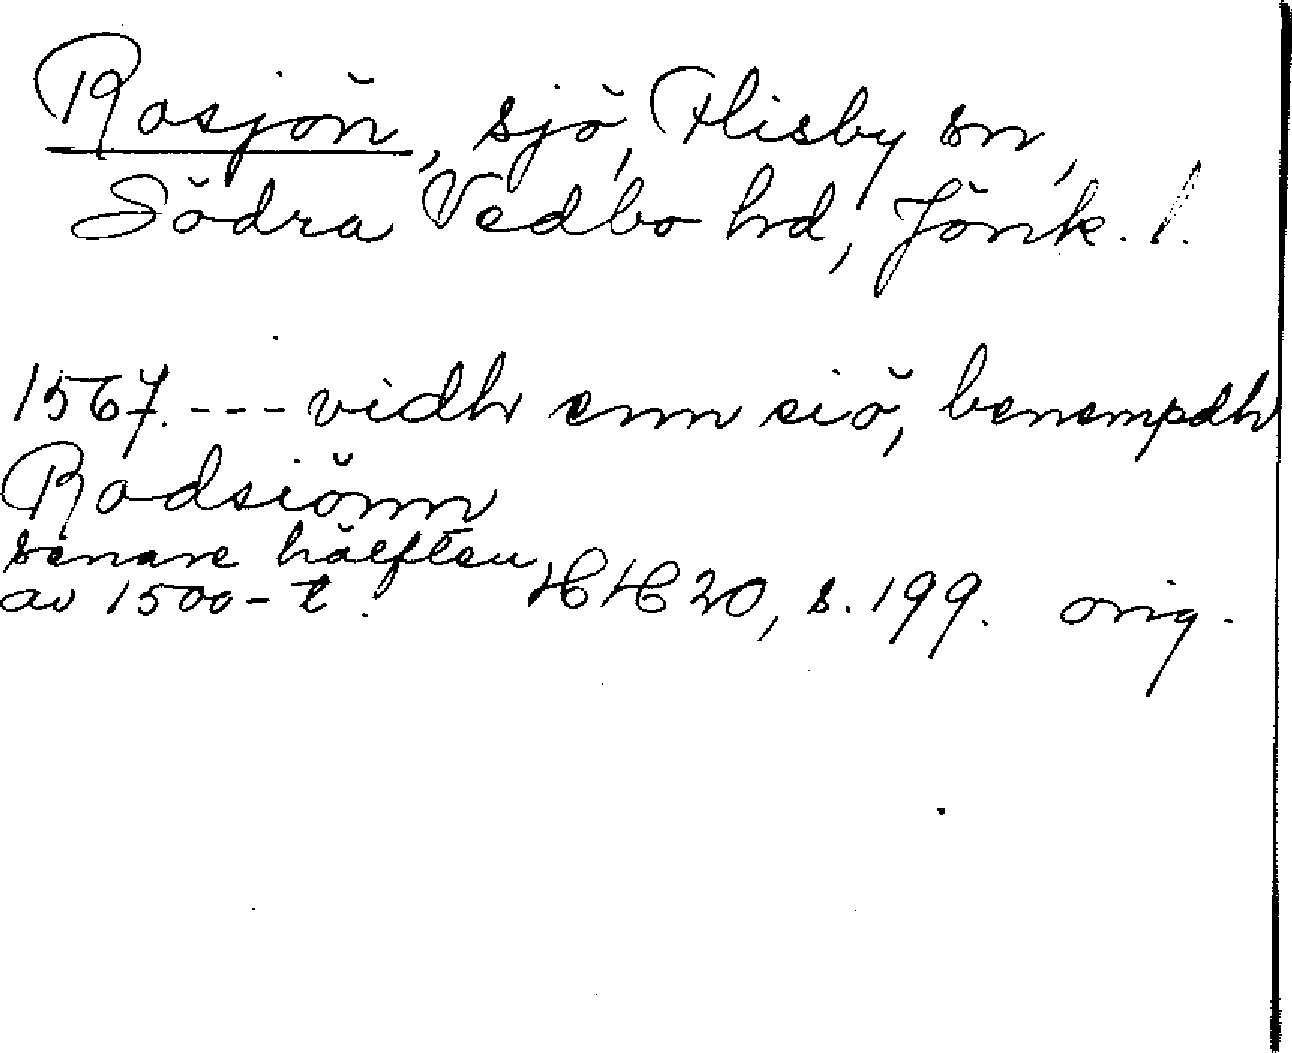 Rosjön, sjö, Flisby sn,
Södra Vedbo hd, Jönk. l.
1567. --- vidh enn siö, benempdh
Rodsiönn
senare hälften
av 1500-t. HH 20, s. 199. orig.